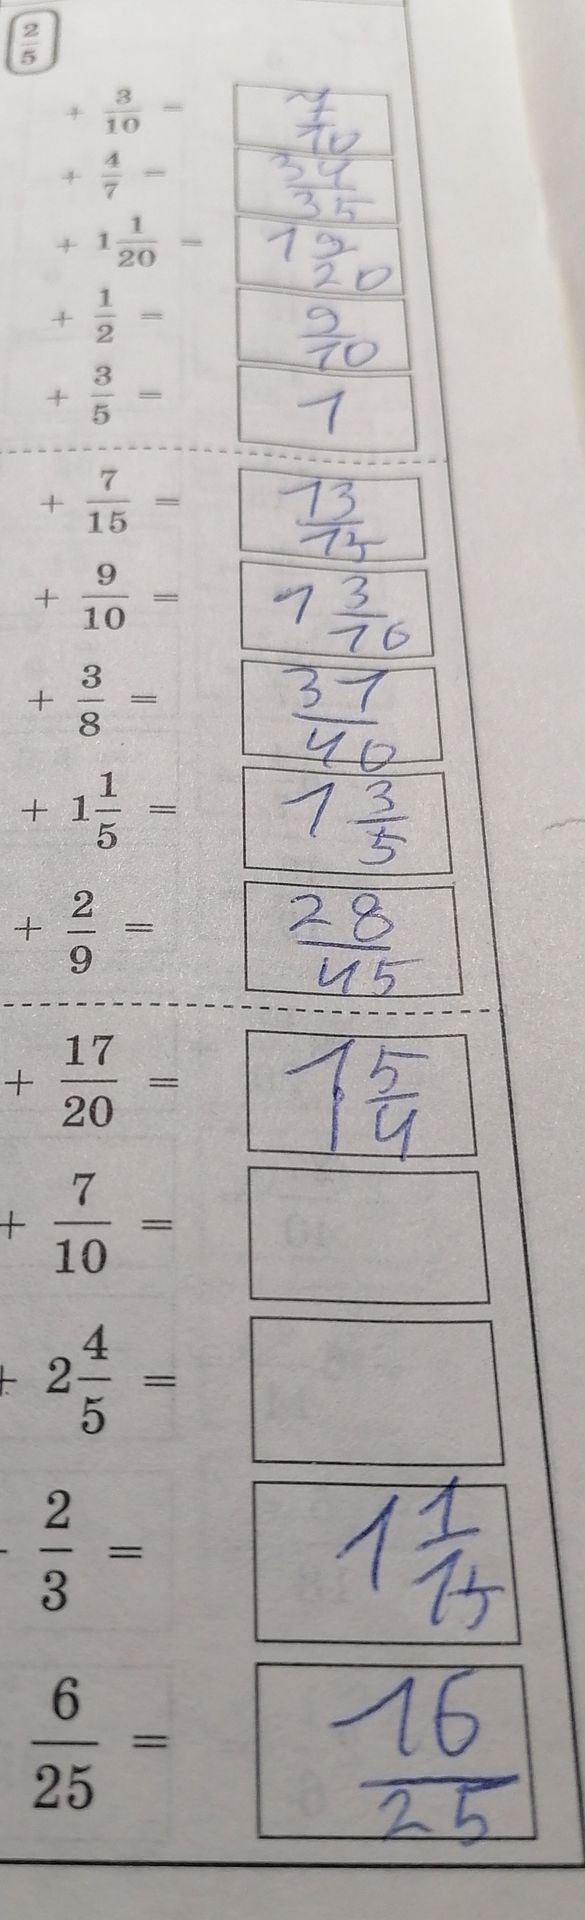 2/5
+ 3/10 = 7/10
+ 4/7 = 34/35
+ 1 1/20 = 1 9/20
+ 1/2 = 9/10
+ 3/5 = 1
+ 7/15 = 13/15
+ 9/10 = 1 3/10
+ 3/8 = 31/40
+ 1 1/5 = 1 3/5
+ 2/9 = 28/45
+ 17/20 = 1 5/4
+ 7/10 =
+ 2 4/5 =
+ 2/3 = 1 1/15
6/25 = 16/25